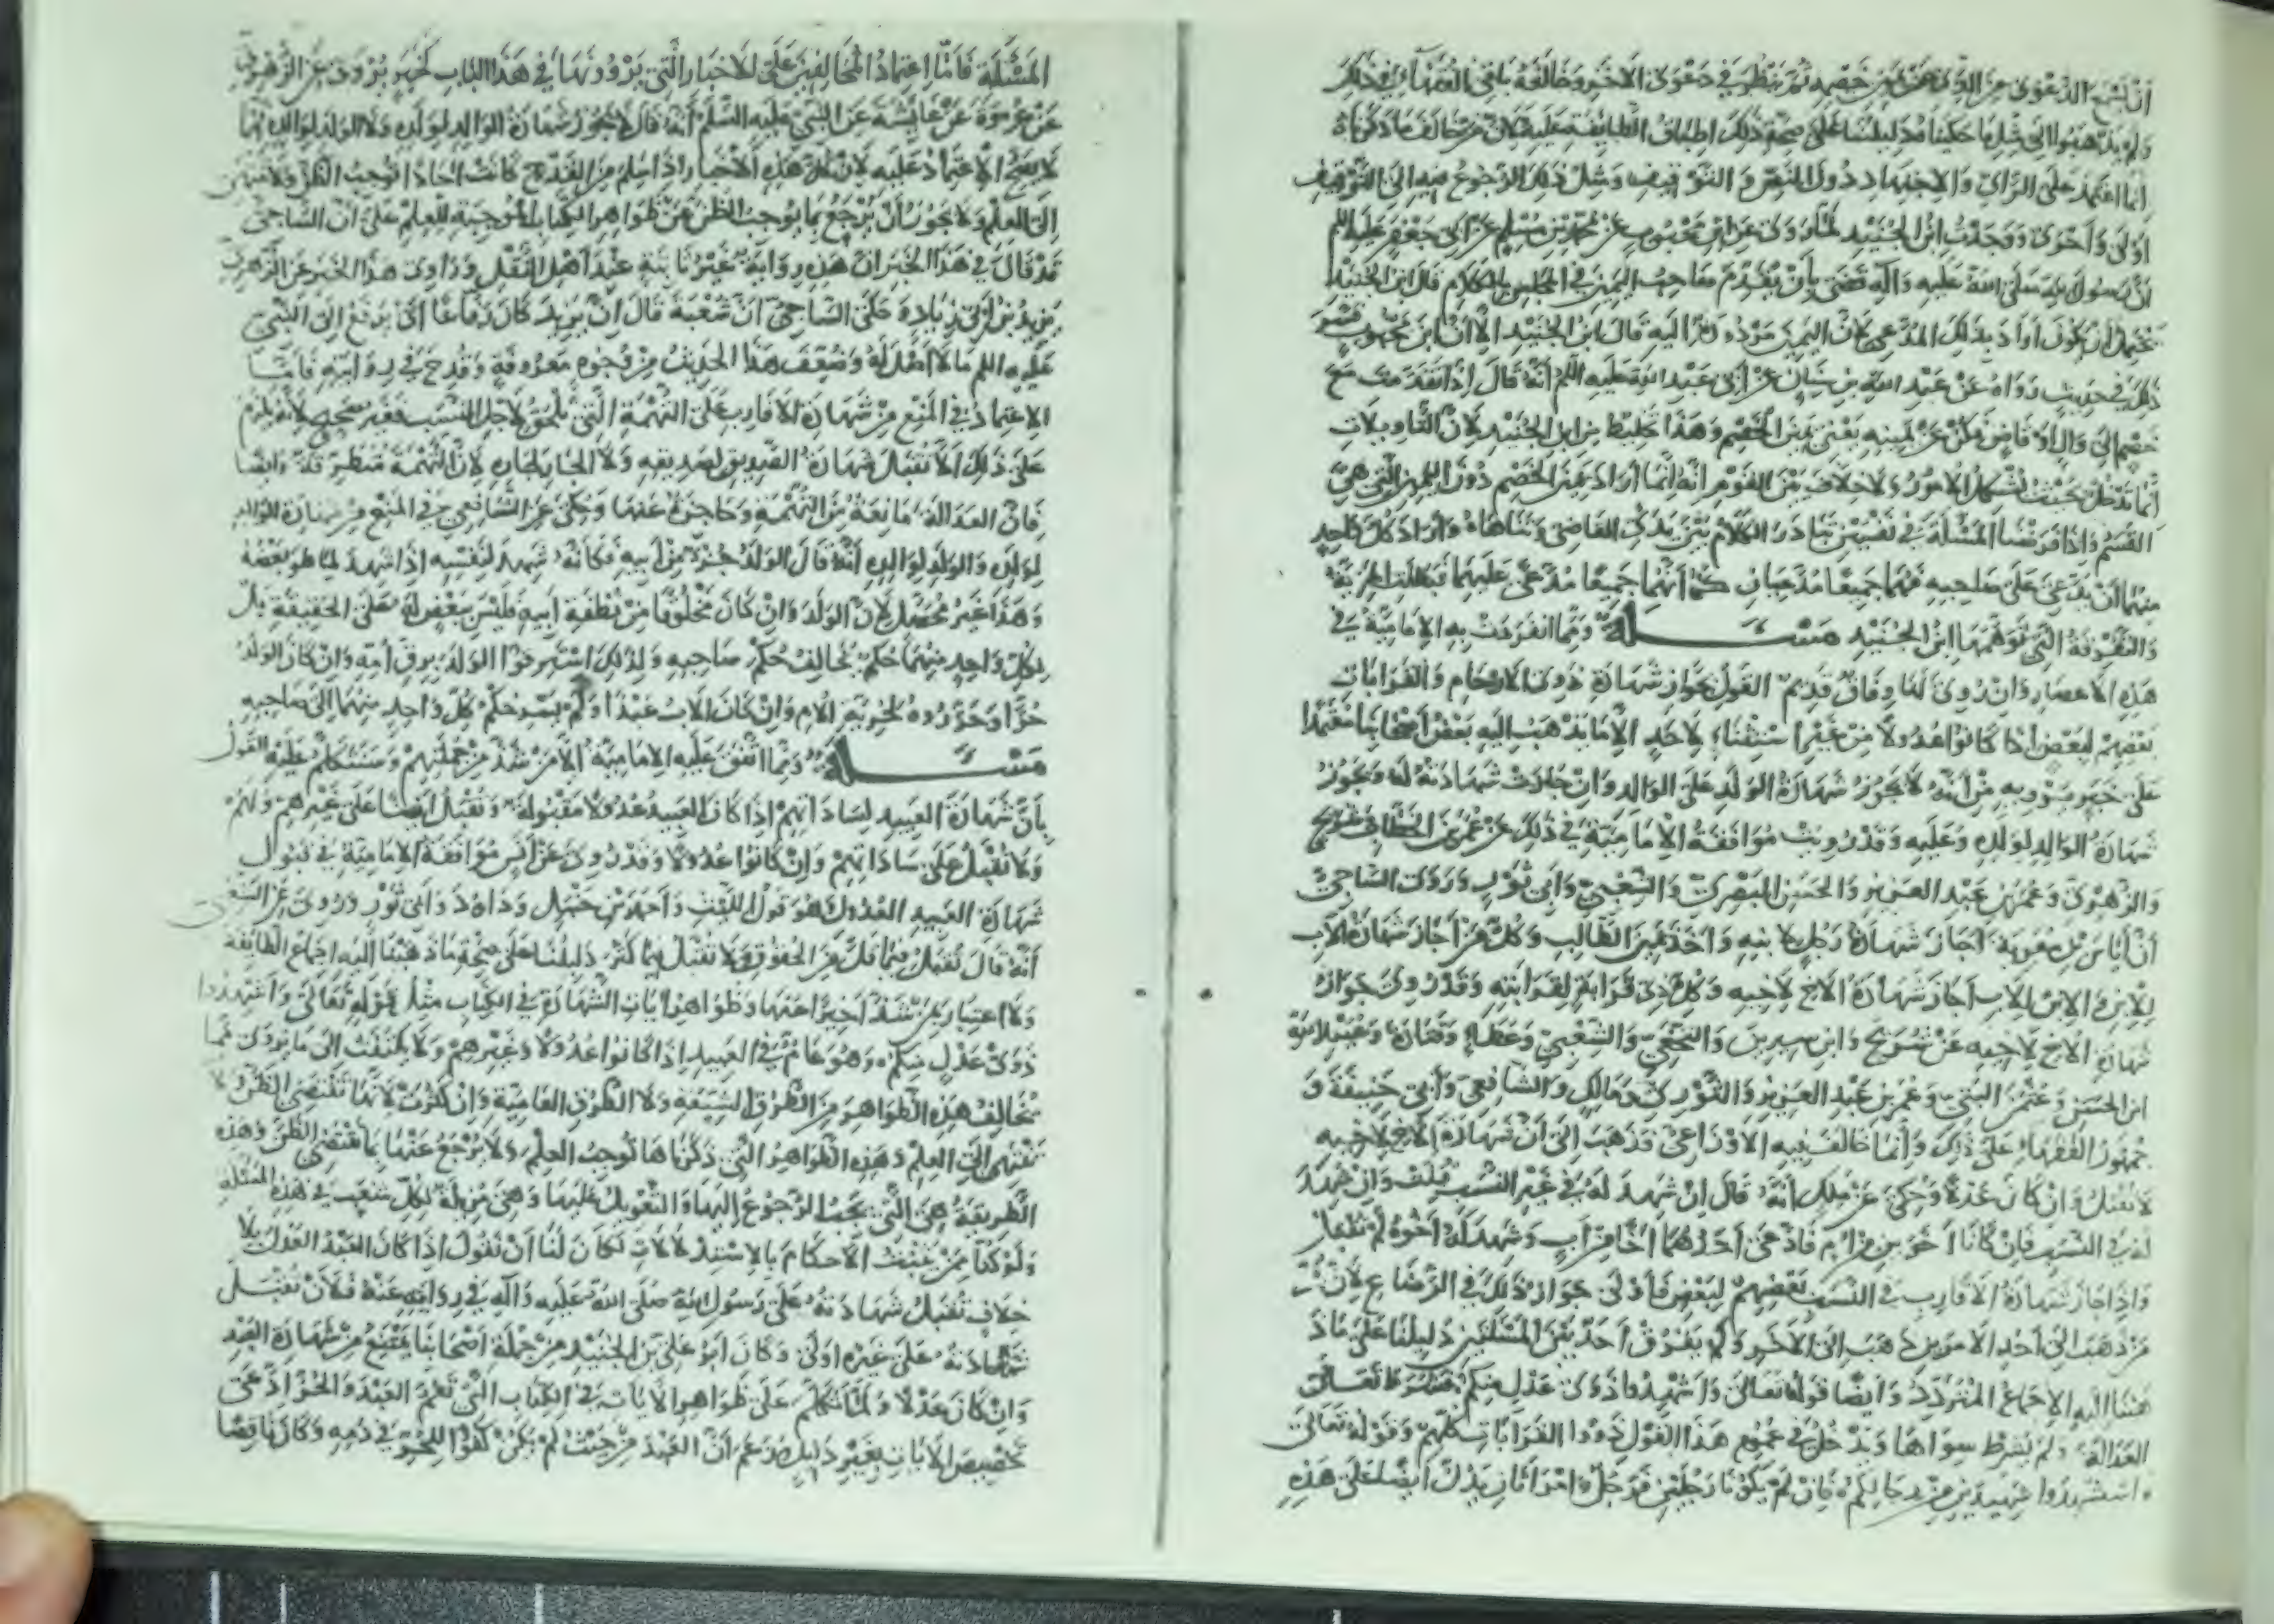 الدعوى من الذي عن يمين خصمه ثم ينظر في دعوى الآخر وخالفه باقي الفقهاء في ذلك
ولم يذهبوا إلى مثل ما حكيناه دليلنا على صحة ذلك اطباق الطايفة عليه ولان من خالف ما ذكرناه
انما اعتمد على الراي والاجتهاد دون النص والتوقيف ومثل ذلك الرجوع فيه إلى التوقيف
اولى واحرى ووجدت ابن الجنيد لما روى عن ابن محبوب عن محمد بن مسلم عن ابي جعفر عليه السلم
ان رسول الله صلى الله عليه وآله قضى بان يقدم صاحب اليمين في المجلس بالكلام قال ابن الجنيد
يحتمل ان يكون اراد بذلك المدعي لان اليمين مردودة اليه قال ابن الجنيد الا ان ابن محبوب فسر
ذلك في حديث رواه عن عبد الله بن سنان عن ابي عبد الله عليه السلم انه قال اذا تقدمت مع
خصم إلى وال او قاض فكن عن يمينه يعني يمين الخصم وهذا تخليط من ابن الجنيد لان التاويلات
انما تدخل بحيث تشكل الامور ولا خلاف بين القوم انه انما اراد يمين الخصم دون اليمين التي هي
القسم واذا فرضنا المسئلة في نفسين تبادرا الكلام بين يدي القاضي وتناهياه واراد كل واحد
منهما ان يدعي على صاحبه فهما جميعا مدعيان كما انهما جميعا مدعى عليهما فبطلت المزية
والتفرقة التي توهمها ابن الجنيد مسئلة ومما انفردت به الامامية في
هذه الاعصار وان روي لنا وفاق قديم القول بجواز شهادة ذوي الارحام والقرابات
بعضهم لبعض اذا كانوا عدولا من غير استثناء لاحد الا ما يذهب اليه بعض اصحابنا معتمدا
على خبر يرويه من انه لا يجوز شهادة الولد على الوالد وان جازت شهادته له ويجوز
شهادة الوالد لولده وعليه وقد رويت موافقة الامامية في ذلك عن عمر بن الخطاب وشريح
والزهري وعمر بن عبد العزيز والحسن البصري والشعبي وابي ثور وروى الساجي
ان اياس بن معوية اجاز شهادة رجل لابنيه واخذ يمين الطالب وكل من اجاز شهادة الاب
للابن والابن للاب اجاز شهادة الاخ لاخيه وكل ذي قرابة لقرابته وقد روي جواز
شهادة الاخ لاخيه عن شريح وابن سيرين والنخعي والشعبي وعطاء وقتادة وعبيد الله
ابن الحسن وعثمن البتي وعمر بن عبد العزيز والثوري ومالك والشافعي وابي حنيفة و
جمهور الفقهاء على ذلك وانما خالف فيه الاوزاعي وذهب إلى ان شهادة الاخ لاخيه
لا تقبل وان كان عدلا وحكي عن ملك انه قال ان شهد له في غير النسب قبلت وان شهد
له في النسب فان كانا اخوين من ام فادعى احدهما اخا من اب وشهد له اخوه لم تقبل
واذا جاز شهادة الاقارب في النسب بعضهم لبعض فاولى جواز ذلك في الرضاع لان
من ذهب إلى احد الامرين ذهب إلى الاخر ولم يفرق احد بين المسئلتين دليلنا على ما ذ
هبنا اليه الاجماع المتردد وايضا قوله تعالى واشهدوا ذوي عدل منكم فشرط تعالى
العدالة ولم يشرط سواها ويدخل في عموم هذا القول ذووا القرابات كلهم وقوله تعالى
واستشهدوا شهيدين من رجالكم فان لم يكونا رجلين فرجل وامراتان يدل ايضا على هذه
المسئلة فاما اعتماد المخالفين على الاخبار التي يروونها في هذا الباب كخبر يروى عن الزهري
عن عروة عن عايشة عن النبي عليه السلم انه قال لا يجوز شهادة الوالد لولده ولا الولد لوالده
لا يصح الاعتماد عليه لان كل هذه الاخبار اذا سلم من القدح كانت احادا توجب الظن ولا تنتهي
إلى العلم ولا يجوز ان يرجع بما يوجب الظن عن ظواهر الكتاب الموجبة للعلم على ان الساجي
قد قال في هذا الخبر ان هذه رواية غير ثابتة عند اهل النقل وراوي هذا الخبر عن الزهري
يزيد بن ابي زياده حكى الساجي ان شعبة قال ان يزيد كان رفاعا اي يرفع إلى النبي
عليه السلم ما لا اصل له وضعف هذا الحديث من وجوه معروفة وقدح في روايته فاما
الاعتماد في المنع من شهادة الاقارب على التهمة التي تلحق لاجل النسب فغير صحيح لانه يلزم
على ذلك الا تقبل شهادة الصديق لصديقه ولا الجار لجاره لان التهمة متطرقة وايضا
فان العدالة مانعة من التهمة وحاجزة عنها وحكي عن الشافعي في المنع من شهادة الوالد
لولده والولد لوالده انه قال الولد جزء من ابيه فكانه شهد لنفسه اذا شهد لما هو بعضه
وهذا غير محصل لان الولد وان كان مخلوقا من نطفة ابيه فليس ببعض له على الحقيقة بل
لكل واحد منهما حكم يخالف حكم صاحبه ولذلك استرقوا الولد برق امه وان كان الوالد
حرا وحرروه لحرية الام وان كان الاب عبدا ولم يسر حكم كل واحد منهما إلى صاحبه
مسئلة ومما اتفق عليه الامامية الا من شذ من جملتهم وسنتكلم عليه القول
بان شهادة العبيد لساداتهم اذا كان العبيد عدولا مقبولة وتقبل ايضا على غيرهم ولهم
ولا تقبل على ساداتهم وان كانوا عدولا وقد روي عن انس موافقة الامامية في قبول
شهادة العبيد العدول وهو قول الليث واحمد بن حنبل وداود وابي ثور وروي عن الشعبي
انه قال تقبل فيما قل من الحقوق ولا تقبل فيما كثر دليلنا على صحة ما ذهبنا اليه اجماع الطائفة
ولا اعتبار بمن شذ اخيرا عنها وظواهر ايات الشهادة في الكتاب مثل قوله تعالى واشهدوا
ذوى عدل منكم وهو عام في العبيد اذا كانوا عدولا وغيرهم ولا يلتفت إلى ما يروى مما
يخالف هذه الظواهر من الطرق الشيعة ولا الطرق العامية وان كثرت لانها تقتضي الظن ولا
تنتهي إلى العلم وهذه الظواهر التي ذكرناها توجب العلم ولا يرجع عنها بما يقتضي الظن وهذه
الطريقة هي التي يجب الرجوع اليها والتعويل عليها وهي مزيلة لكل شعب في هذه المسئلة
ولو كنا ممن يثبت الاحكام بالاستدلالات لكان لنا ان نقول اذا كان العبد العدل بلا
خلاف تقبل شهادته على رسول الله صلى الله عليه وآله في روايته عنه فلان تقبل
شهادته على غيره اولى وكان ابو علي بن الجنيد من جملة اصحابنا يمتنع من شهادة العبد
وان كان عدلا ولما تكلم على ظواهر الايات في الكتاب التي تعم العبد والحر ادعى
تخصيص الايات بغير دليل وزعم ان العبد من حيث لم يكن كفوا للحر في دمه وكان ناقصا